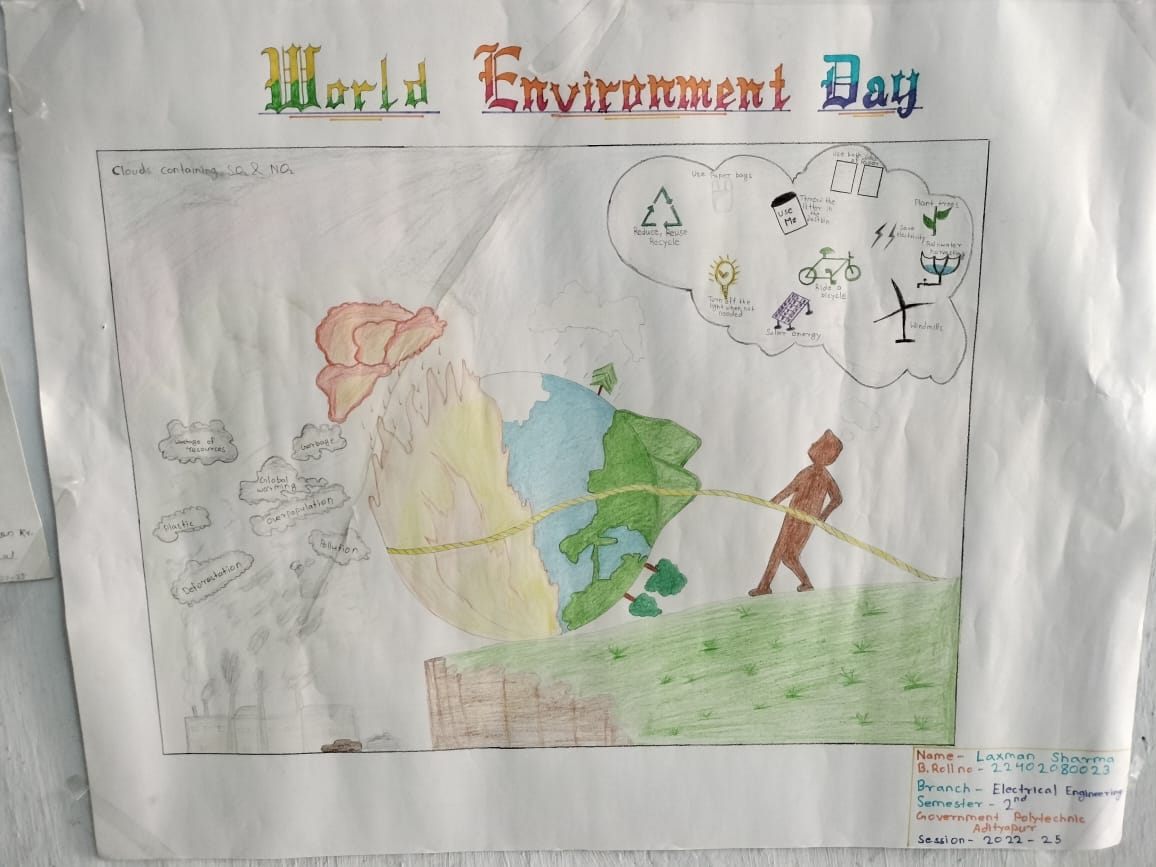 World Environment Day
Clouds containing SO₂ & NO₂
Use Paper bags
Use both
Reduce, Reuse
Recycle
USE
Me
Throw the
litter in
the
dustbin
Plant trees
Save
electricity
Rainwater
harvesting
Turn off the
light when not
needed
Ride a
bicycle
Solar energy
Windmills
of
resources
Garbage
Global
warming
Overpopulation
Plastic
Pollution
Deforestation
Name - Laxman Sharma
B.Roll no - 22402080023
Branch - Electrical Engineering
Semester - 2nd
Government Polytechnic
Adityapur
Session - 2022 - 25